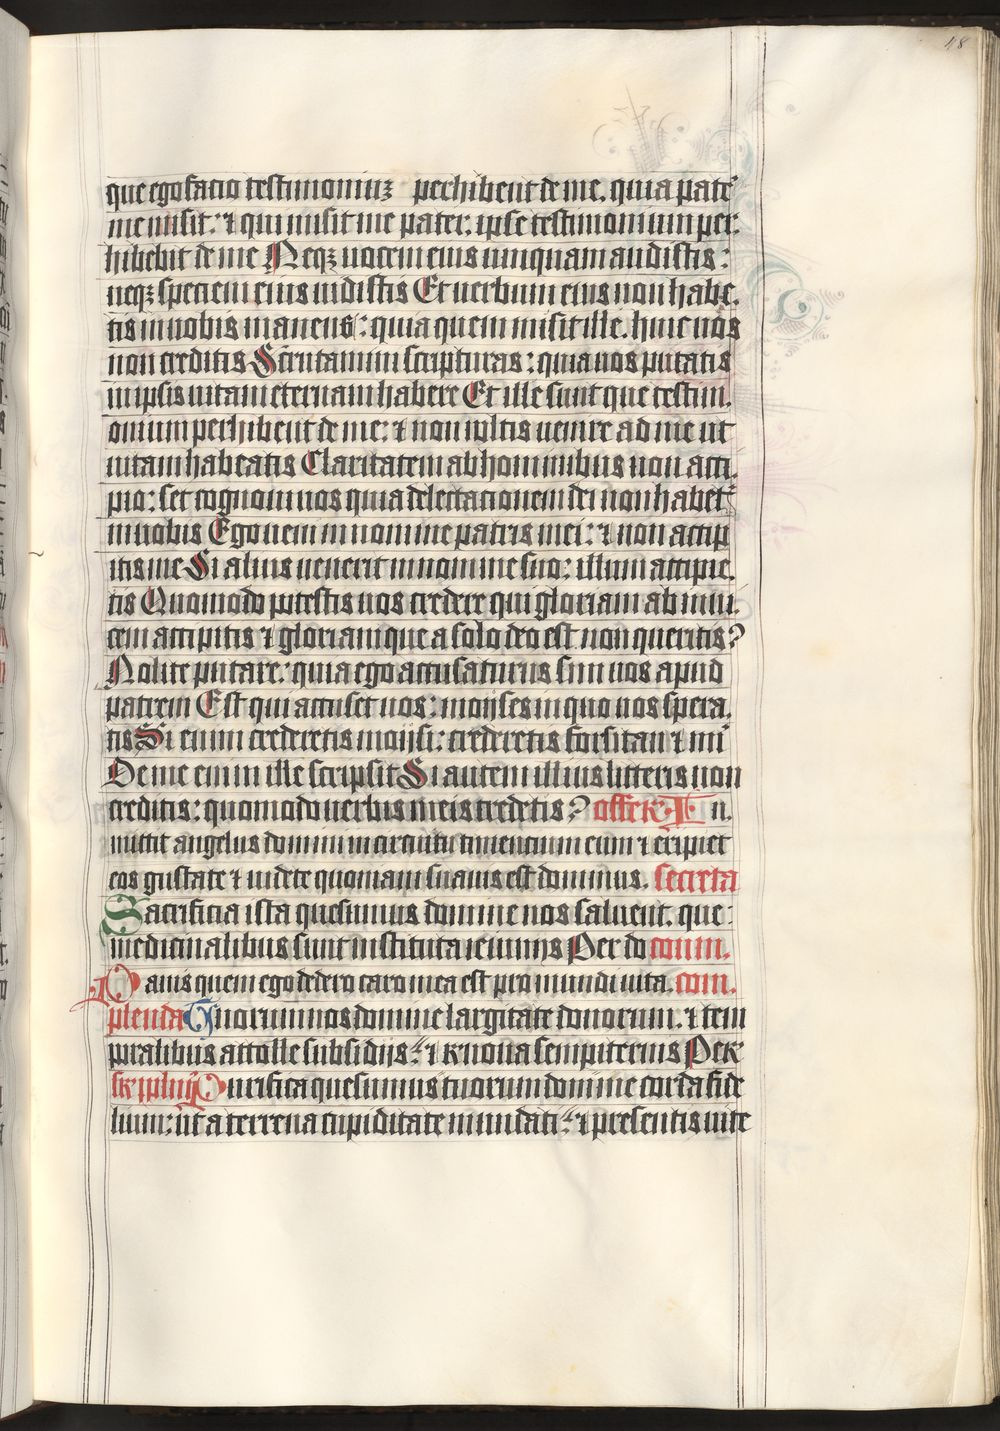 48
que ego facio testimoniuꝫ perhibent de me. quia pat͛
me misit: ⁊ qui misit me pater. ipse testimonium per:
hibebit de me Neqꝫ uocem eius umquam audistis:
neqꝫ speciem eius uidistis Et uerbum eius non habe.
tis in uobis manens: quia quem misit ille. huic uos
non creditis Scrutamini scripturas: quia uos putatis
in ipsis uitam eternam habere Et ille sunt que testim.
onium perhibent de me: ⁊ non wltis uenire ad me ut
uitam habeatis Claritatem ab hominibus non acci.
pio: set cognoui uos quia delectacionem dei non habet͛
in uobis Ego ueni in nomine patris mei: ⁊ non accip
itis me Si alius uenerit in nomine suo: illum accipie.
tis Quomodo potestis uos credere qui gloriam ab inui.
cem accipitis ⁊ gloriam que a solo deo est non queritis?
Nolite putare: quia ego accusaturus sim uos apud
patrem Est qui accuset uos: moyses in quo uos spera.
tis Si enim crederetis moysi: crederetis forsitan ⁊ mi͛
De me enim ille scripsit Si autem illius litteris non
creditis: quomodo uerbis meis credetis? offer. I n.
mittit angelus domini in circuitu timencium eum ⁊ eripiet
eos gustate ⁊ uidete quoniam suauis est dominus. secreta
Sacrificia ista quesumus domine nos saluent. que:
medicinalibus sunt instituta ieiuniis Per do comm.
Panis quem ego dedero caro mea est pro mundi uita. com.
plenda Tuorum nos domine largitate donorum. ⁊ tem
poralibus attolle subsidijs: ⁊ renoua sempiternis Per
sr pplm Purifica quesumus tuorum domine corda fide
lium: ut a terrena cupiditate mundati: ⁊ presentis uite